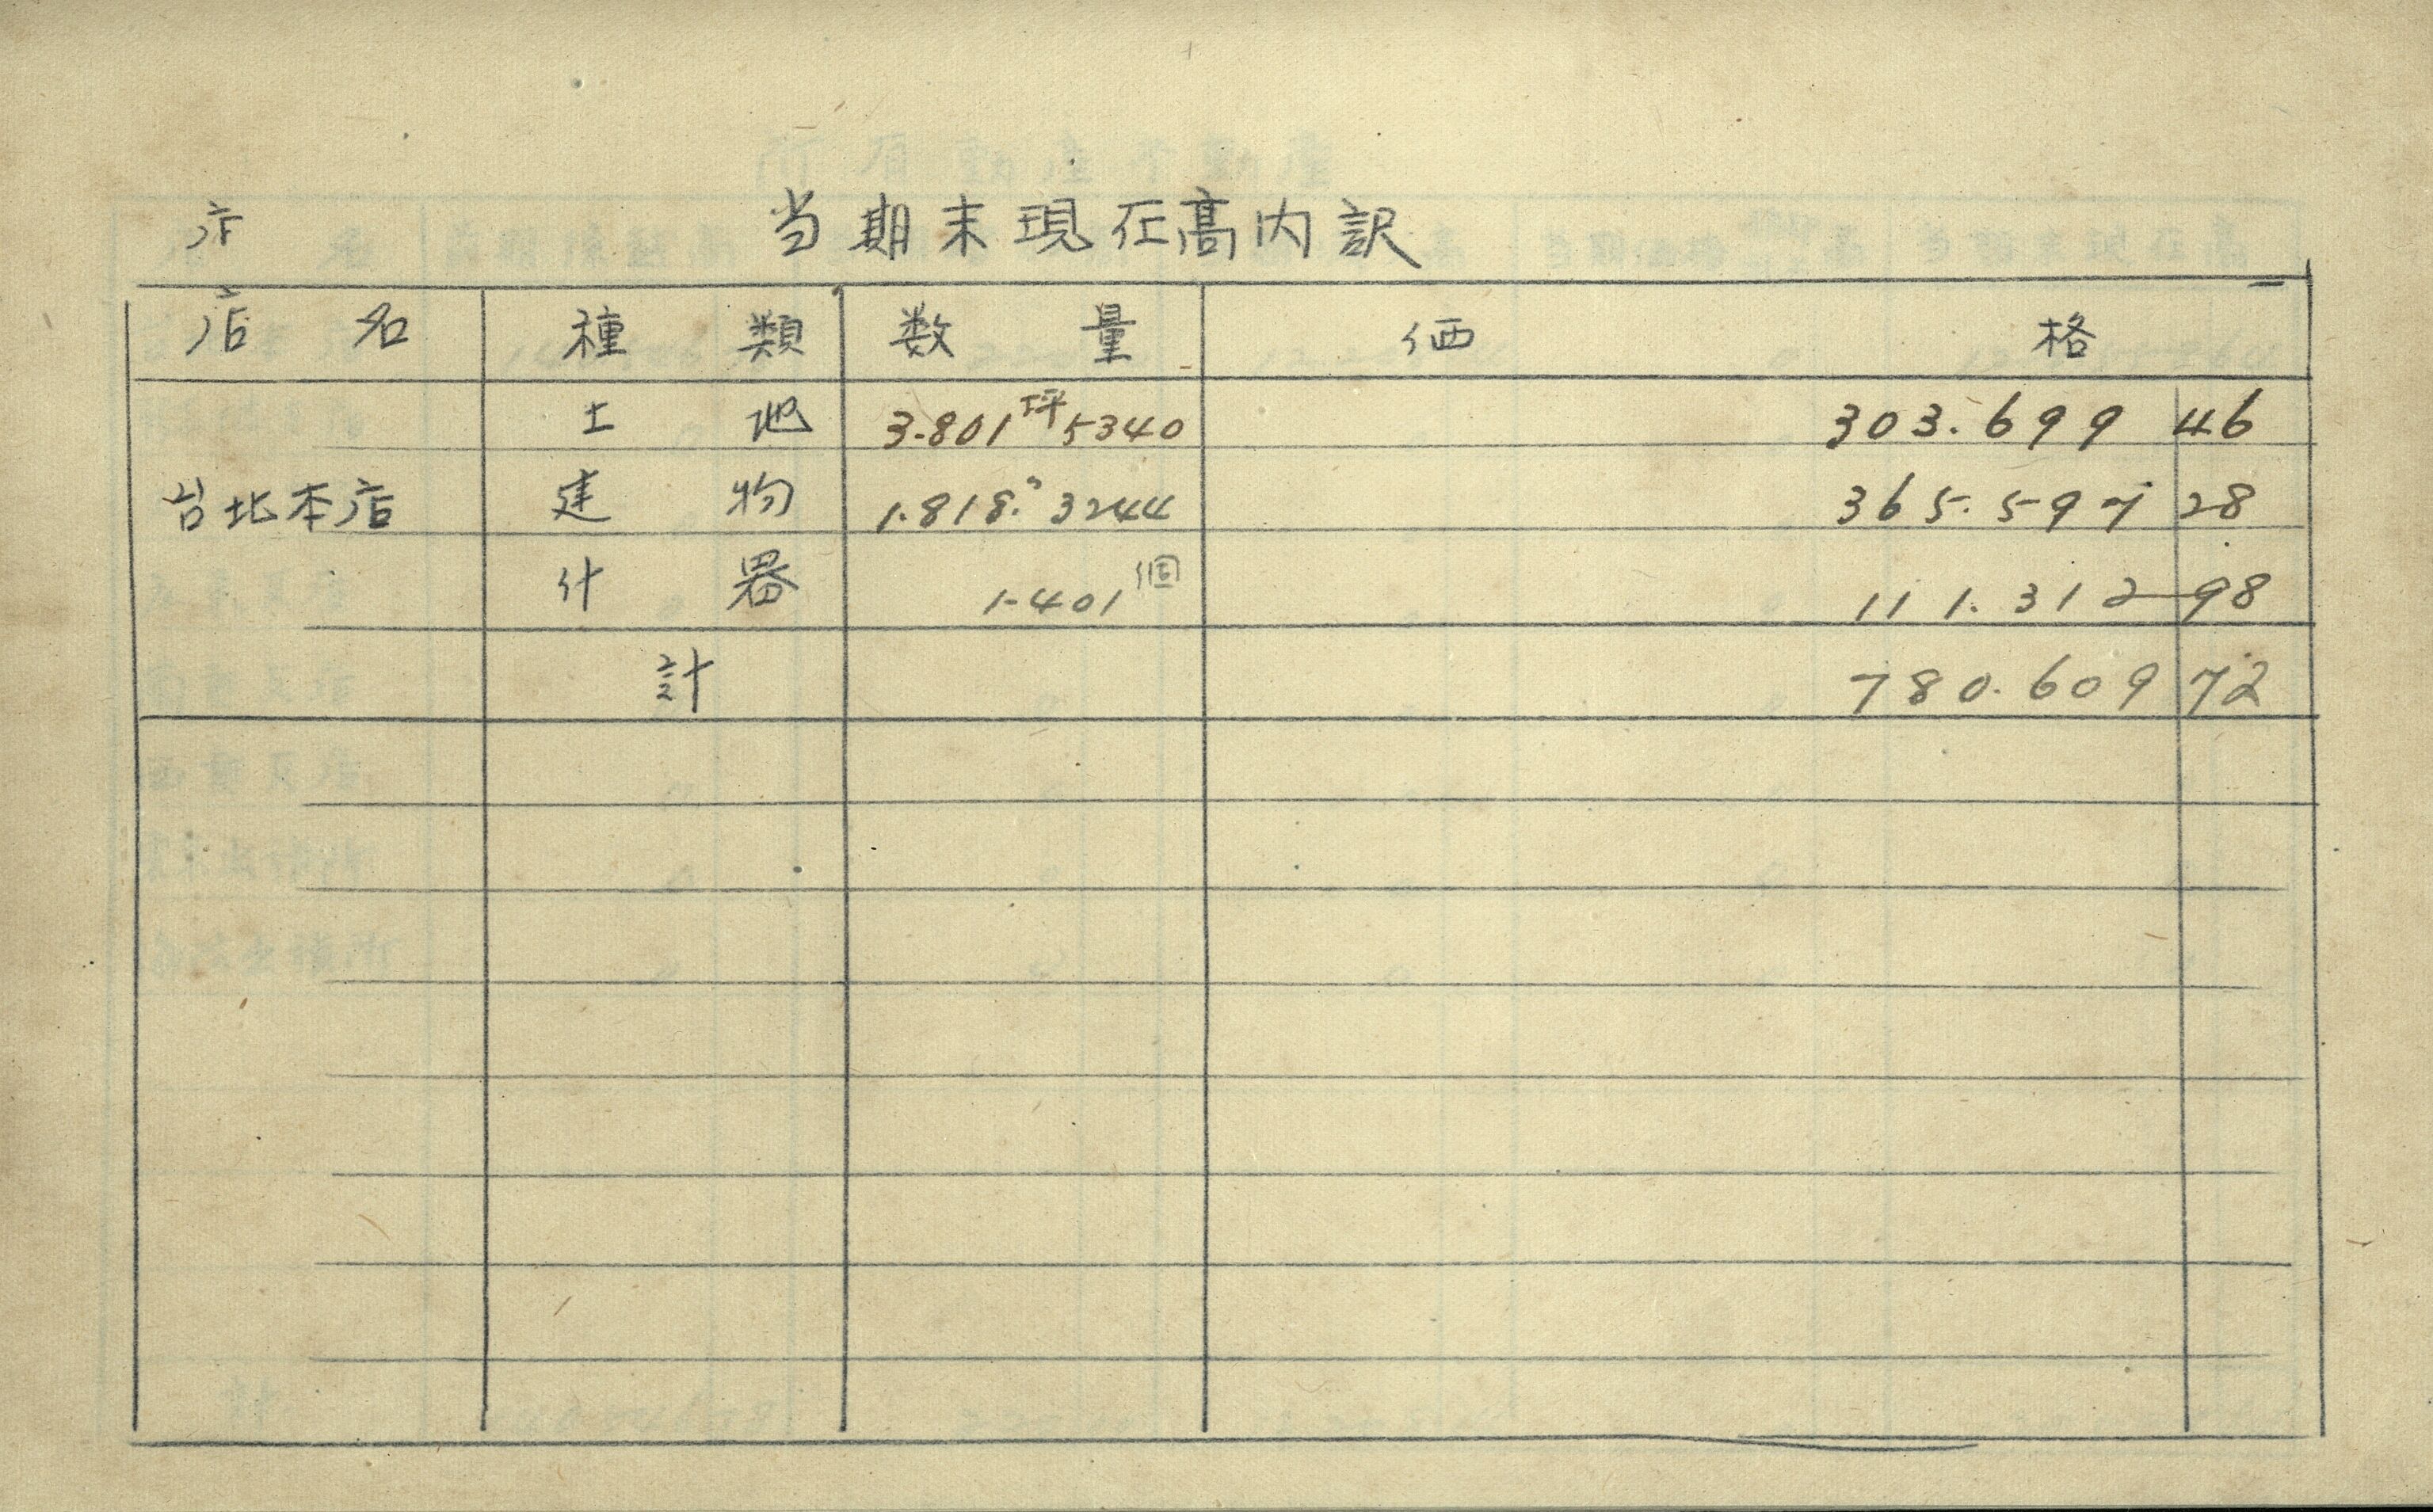 当期末現在高内訳
店名 種類 数量 価格
土地 3.801坪5340 303.699 46
台北本店 建物 1.818.〃3244 365.597 28
什器 1.401個 111.312 98
計 780.609 72